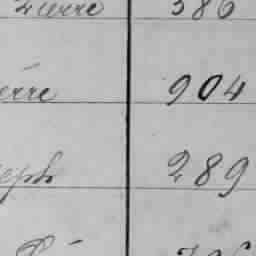 Pierre 386
erre 904
seph 289